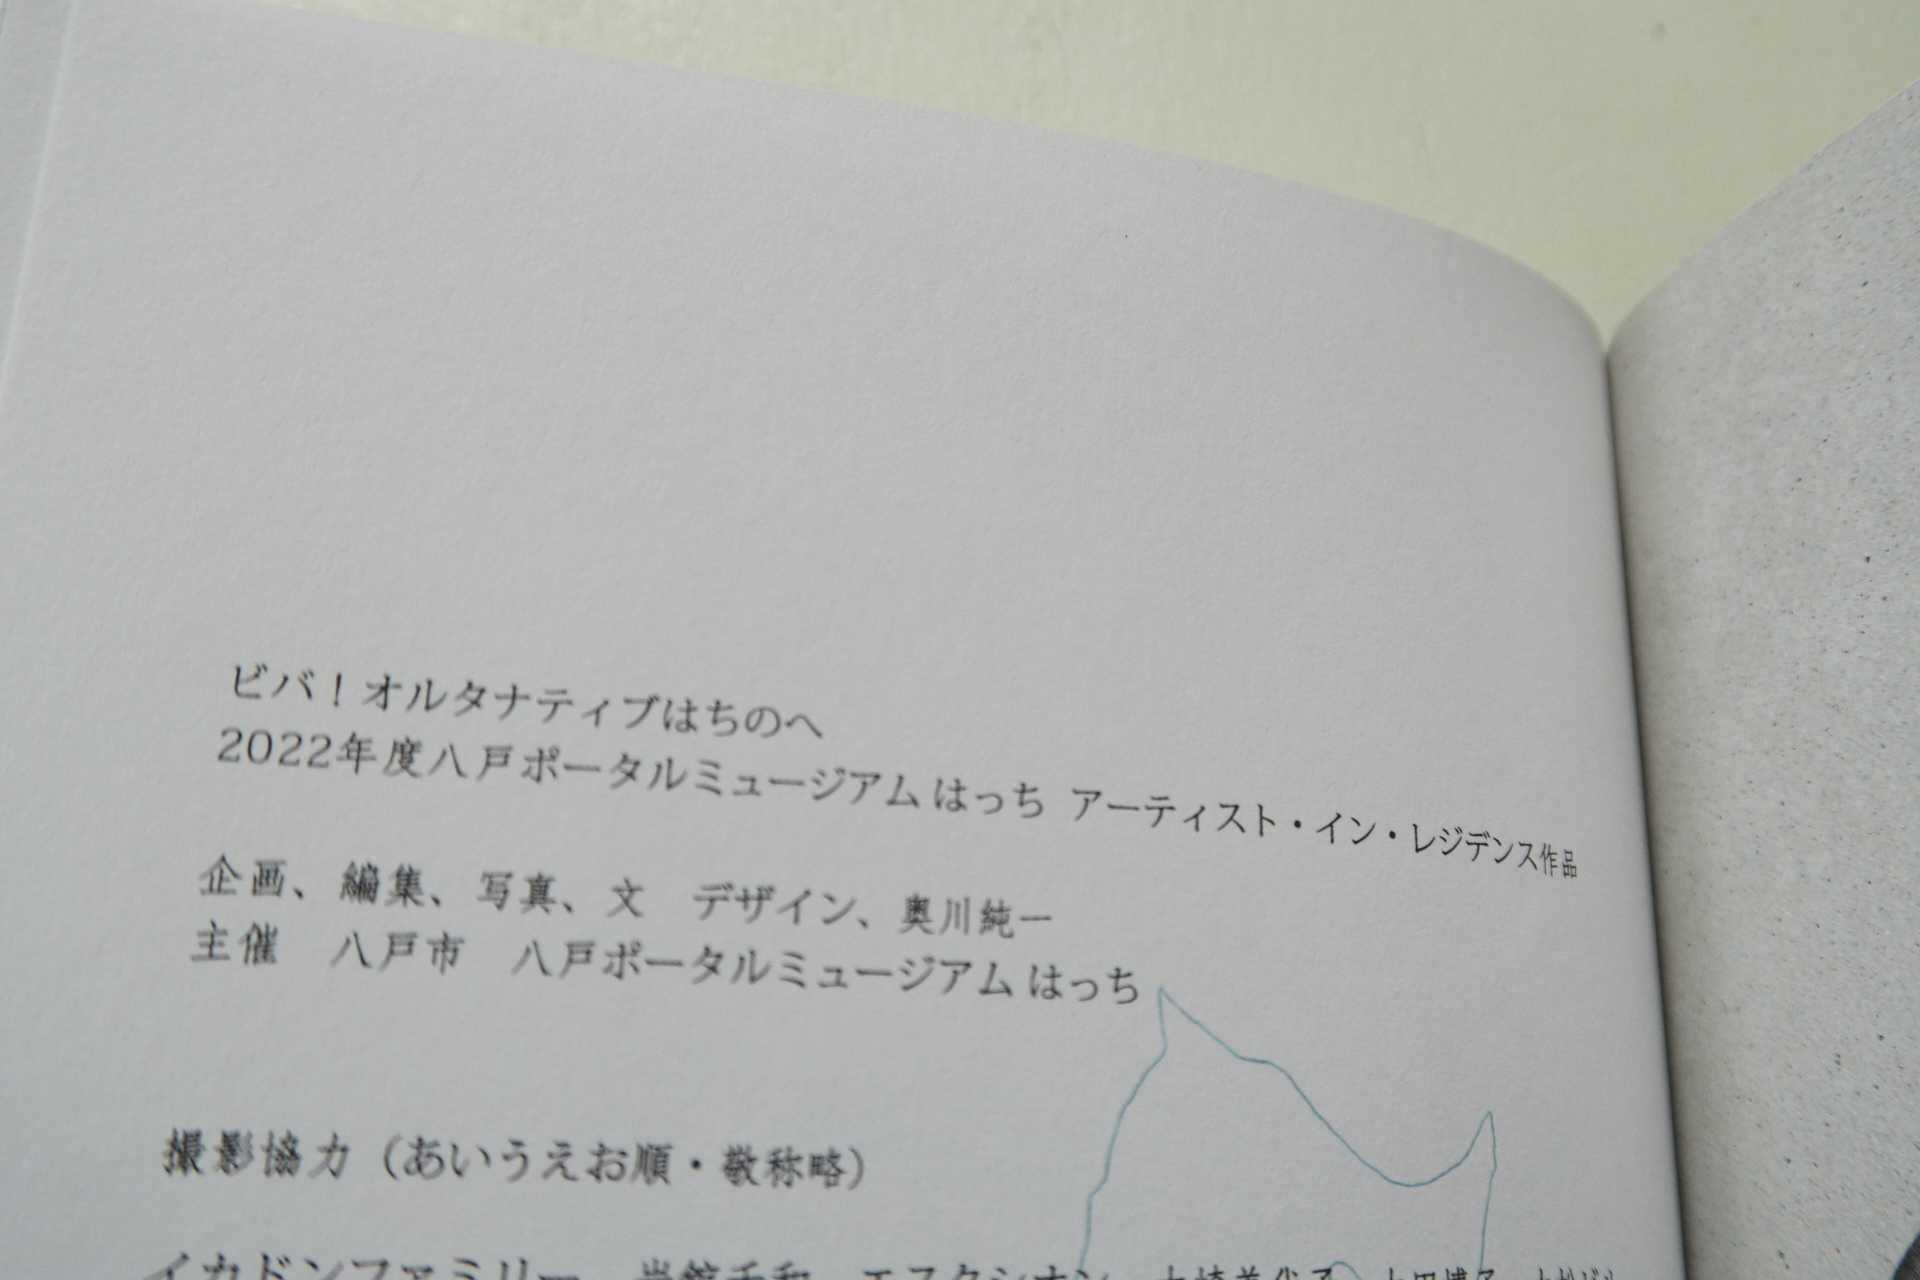 ビバ！オルタナティブはちのへ
2022年度八戸ポータルミュージアム はっち アーティスト・イン・レジデンス作品
企画、編集、写真、文　デザイン、奥川純一
主催　八戸市　八戸ポータルミュージアム はっち
撮影協力（あいうえお順・敬称略）
イカドンファミリー